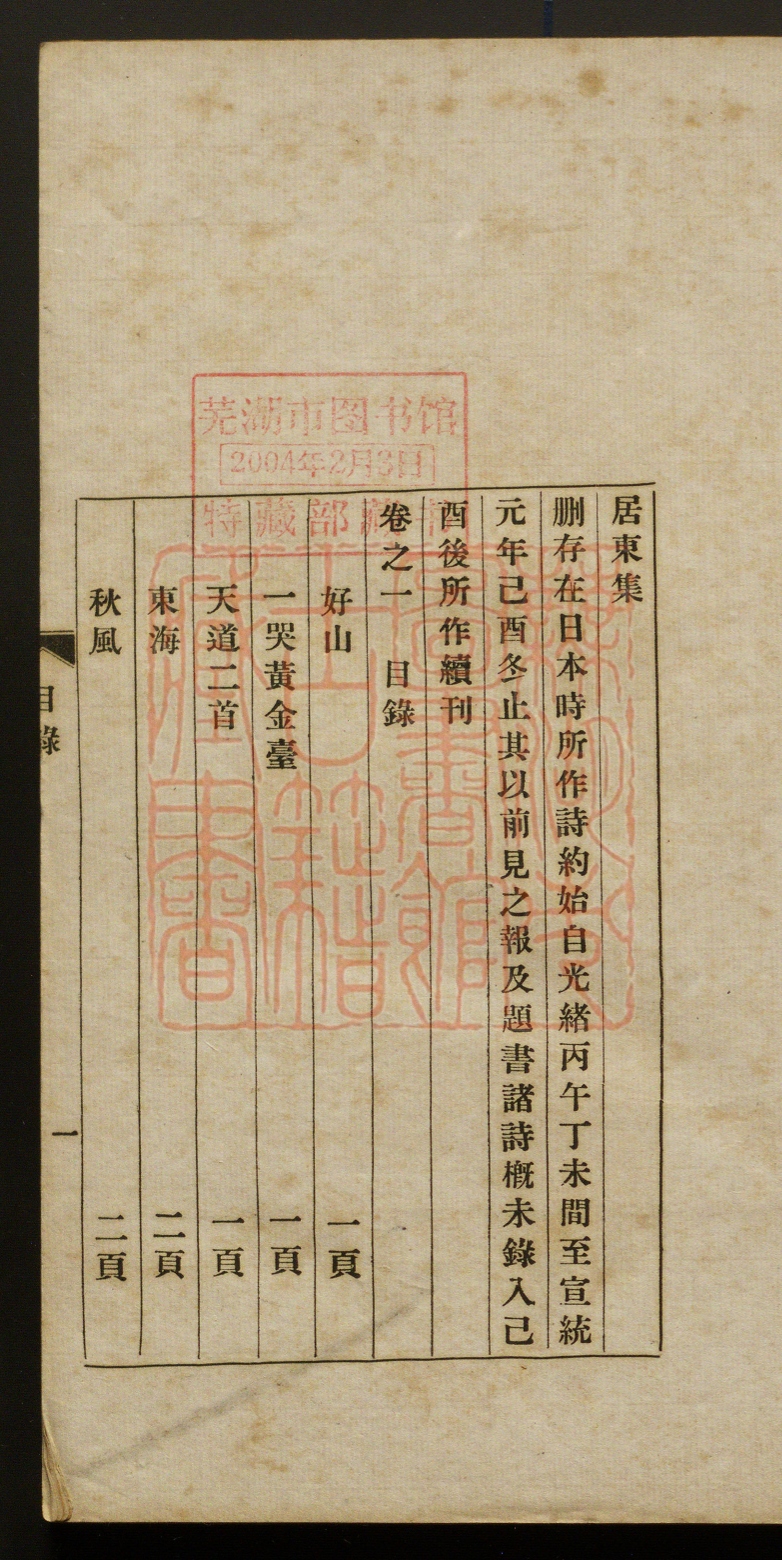 居東集
删存在日本時所作詩約始自光緒丙午丁未間至宣統
元年己酉冬止其以前見之報及題書諸詩槪未錄入己
酉後所作續刊
卷之一　目錄
好山　一頁
一哭黃金臺　一頁
天道二首　一頁
東海　二頁
秋風　二頁
目錄　一
芜湖市图书馆
2004年2月3日
特藏部藏书